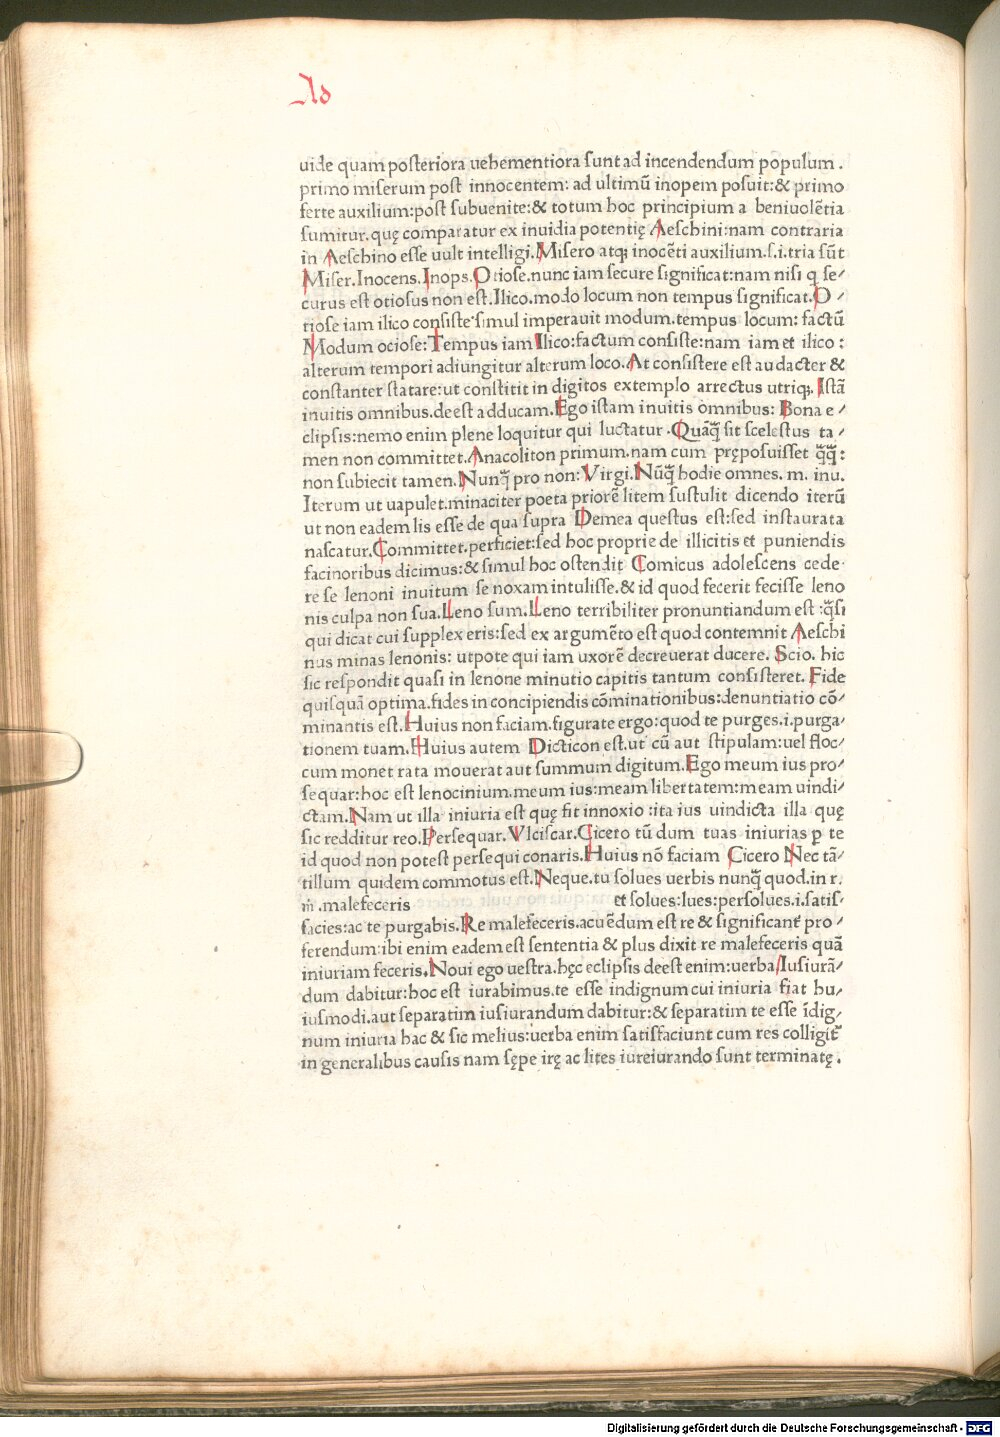 Ad
uide quam posteriora uehementiora sunt ad incendendum populum.
primo miserum post innocentem: ad ultimū inopem posuit:& primo
ferte auxilium:post subuenite:& totum hoc principium a beniuolētia
sumitur.quę comparatur ex inuidia potentię Aeschini:nam contraria
in Aeschino esse uult intelligi.Misero atq; inocēti auxilium.s.i.tria sūt
Miser.Inocens.Inops.Otiose.nunc iam secure significat:nam nisi q se/
curus est otiosus non est.Ilico.modo locum non tempus significat.O /
tiose iam ilico consiste simul imperauit modum.tempus locum: factū
Modum ociose:Tempus iam Ilico:factum consiste:nam iam et ilico :
alterum tempori adiungitur alterum loco.At consistere est audacter &
constanter statare:ut constitit in digitos extemplo arrectus utriq;.Istā
inuitis omnibus.deest adducam.Ego istam inuitis omnibus: Bona e /
clipsis:nemo enim plene loquitur qui luctatur.Quāq̄ sit scelestus ta /
men non committet.Anacoliton primum.nam cum pręposuisset q̄q̄:
non subiecit tamen.Nunq̄ pro non:Virgi.Nūq̄ hodie omnes. m. inu.
Iterum ut uapulet.minaciter poeta priorē litem sustulit dicendo iterū
ut non eadem lis esse de qua supra Demea questus est:sed instaurata
nascatur.Committet.perficiet:sed hoc proprie de illicitis et puniendis
facinoribus dicimus:& simul hoc ostendit Comicus adolescens cede
re se lenoni inuitum se noxam intulisse.& id quod fecerit fecisse leno
nis culpa non sua.Leno sum.Leno terribiliter pronuntiandum est :q̄si
qui dicat cui supplex eris:sed ex argumēto est quod contemnit Aeschi
nus minas lenonis: utpote qui iam uxorē decreuerat ducere. Scio. hic
sic respondit quasi in lenone minutio capitis tantum consisteret. Fide
quisquā optima.fides in concipiendis cōminationibus:denuntiatio cō/
minantis est.Huius non faciam.figurate ergo:quod te purges.i.purga/
tionem tuam.Huius autem Dicticon est.ut cū aut stipulam:uel floc/
cum monet rata mouerat aut summum digitum.Ego meum ius pro/
sequar:hoc est lenocinium.meum ius:meam libertatem:meam uindi/
ctam.Nam ut illa iniuria est quę fit innoxio :ita ius uindicta illa quę
sic redditur reo.Persequar.Vlciscar.Cicero tū dum tuas iniurias ꝑ te
id quod non potest persequi conaris.Huius nō faciam Cicero Nec tā/
tillum quidem commotus est.Neque.tu solues uerbis nunq̄ quod.in r.
m̄ .malefeceris et solues:lues:persolues.i.satis/
facies:ac te purgabis.Re malefeceris.acuēdum est re & significant̄ pro /
ferendum:ibi enim eadem est sententia & plus dixit re malefeceris quā
iniuriam feceris.Noui ego uestra.hęc eclipsis deest enim:uerba Iusiurā/
dum dabitur:hoc est iurabimus.te esse indignum cui iniuria fiat hu/
iusmodi.aut separatim iusiurandum dabitur:& separatim te esse īdig/
num iniuria hac & sic melius:uerba enim satisfaciunt cum res colligit̄
in generalibus causis nam sępe irę ac lites iureiurando sunt terminatę.
Digitalisierung gefördert durch die Deutsche Forschungsgemeinschaft - DFG